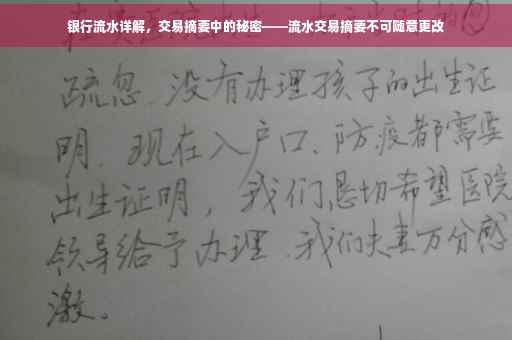 银行流水详解，交易摘要中的秘密——流水交易摘要不可随意更改
疏忽.没有办理孩子的出生证
明.现在入户口、防疫都需要
出生证明，我们恳切希望医院
领导给予办理.我们夫妻万分感
激。